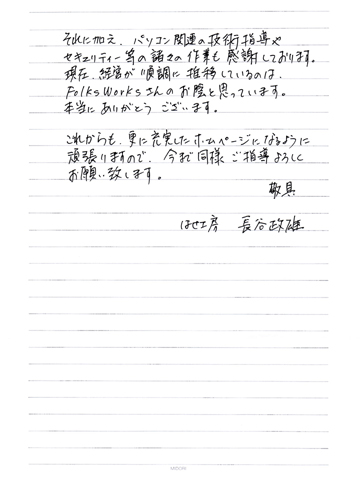 それに加え、パソコン関連の技術指導や
セキュリティー等の諸々の作業も感謝しております。
現在、経営が順調に推移しているのは、
Folks Worksさんのお陰と思っています。
本当にありがとうございます。
これからも、更に充実したホームページになるように
頑張りますので、今まで同様ご指導よろしく
お願い致します。
敬具
はせ工房 長谷政雄